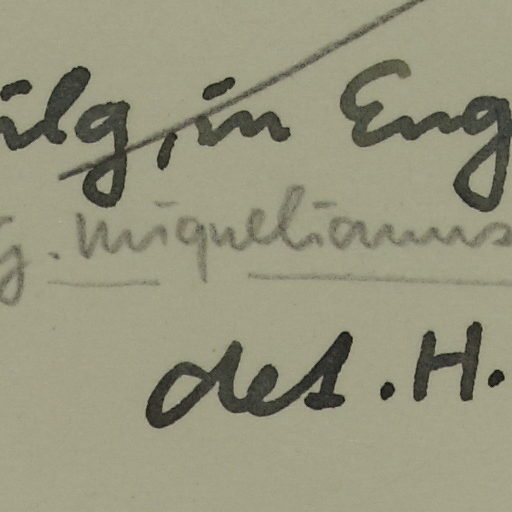 ilg, in Eng
g. miquelianus
det. H.